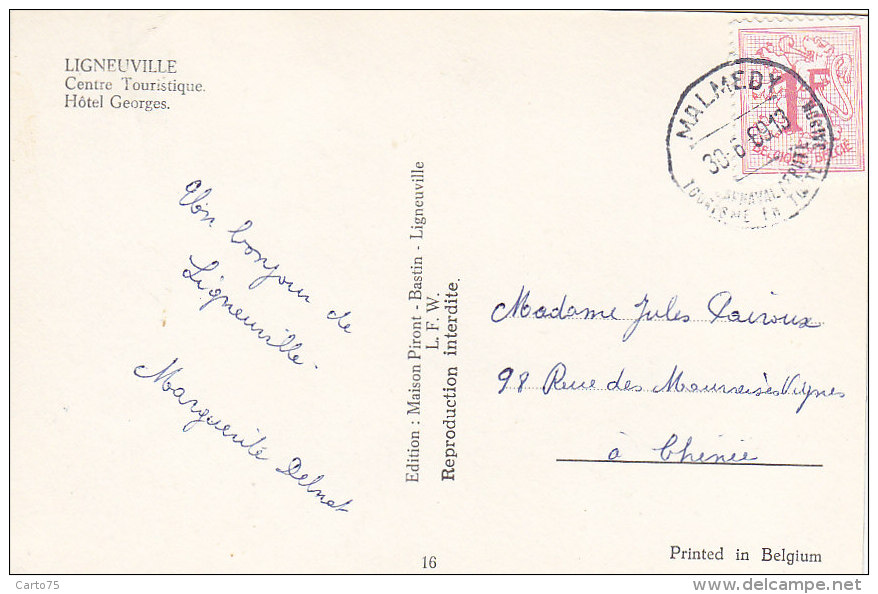 LIGNEUVILLE
Centre Touristique.
Hôtel Georges.
Un bonjour de
Ligneuville.
Marguerite Delnat
Edition : Maison Piront - Bastin - Ligneuville
L. F. W.
Reproduction interdite.
16
1F
BELGIQUE BELGIE
MALMEDY
30-6 6913
CARNAVAL
TOURISME EN TOUTE SAISON
Madame Jules Lairoux
98 Rue des Mauvaises Vignes
à Chênée
Printed in Belgium
Carto75
www.delcampe.net